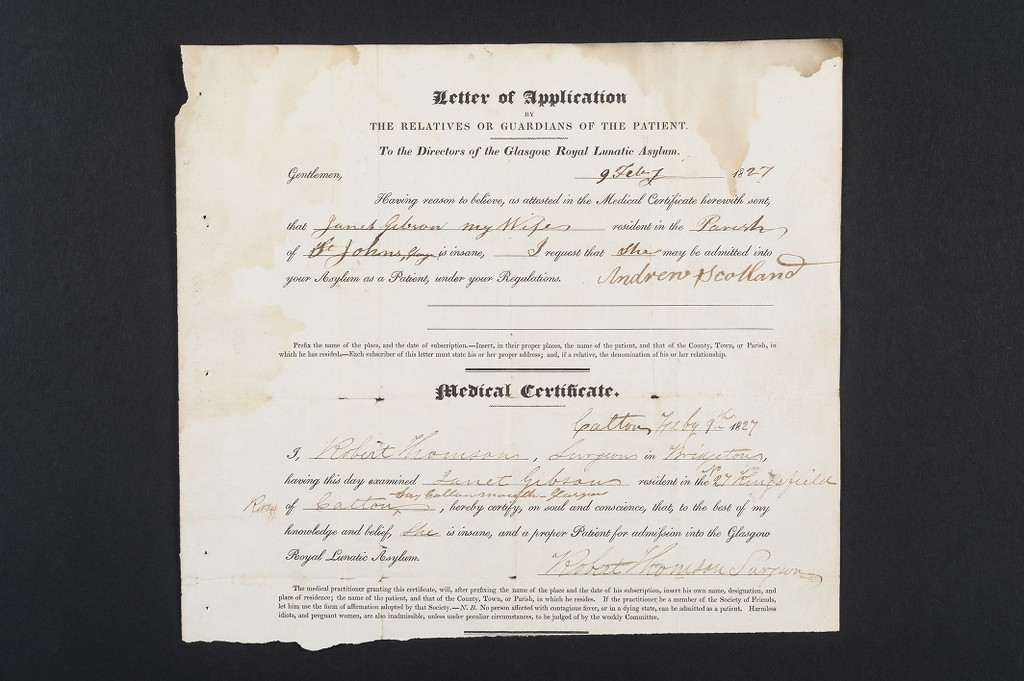 Letter of Application
BY
THE RELATIVES OR GUARDIANS OF THE PATIENT.
To the Directors of the Glasgow Royal Lunatic Asylum.
Gentlemen, 9 Feby 1827
Having reason to believe, as attested in the Medical Certificate herewith sent,
that Janet Gibson my Wife resident in the Parish
of St Johns, Glasgw is insane, I request that She may be admitted into
your Asylum as a Patient, under your Regulations. Andrew Scotland
Prefix the name of the place, and the date of subscription.—Insert, in their proper places, the name of the patient, and that of the County, Town, or Parish, in
which he has resided.—Each subscriber of this letter must state his or her proper address; and, if a relative, the denomination of his or her relationship.
Medical Certificate.
Calton Feby 9th 1827
I, Robert Thomson, Surgeon in Bridgeton,
having this day examined Janet Gibson resident in the No 27 Kingsfield
say Calton mouth - Glasgow
of Calton, hereby certify, on soul and conscience, that, to the best of my
knowledge and belief, she is insane, and a proper Patient for admission into the Glasgow
Royal Lunatic Asylum.
Robert Thomson Surgeon
The medical practitioner granting this certificate, will, after prefixing the name of the place and the date of his subscription, insert his own name, designation, and
place of residence; the name of the patient, and that of the County, Town, or Parish, in which he resides. If the practitioner be a member of the Society of Friends,
let him use the form of affirmation adopted by that Society.—N. B. No person affected with contagious fever, or in a dying state, can be admitted as a patient. Harmless
idiots, and pregnant women, are also inadmissible, unless under peculiar circumstances, to be judged of by the weekly Committee.